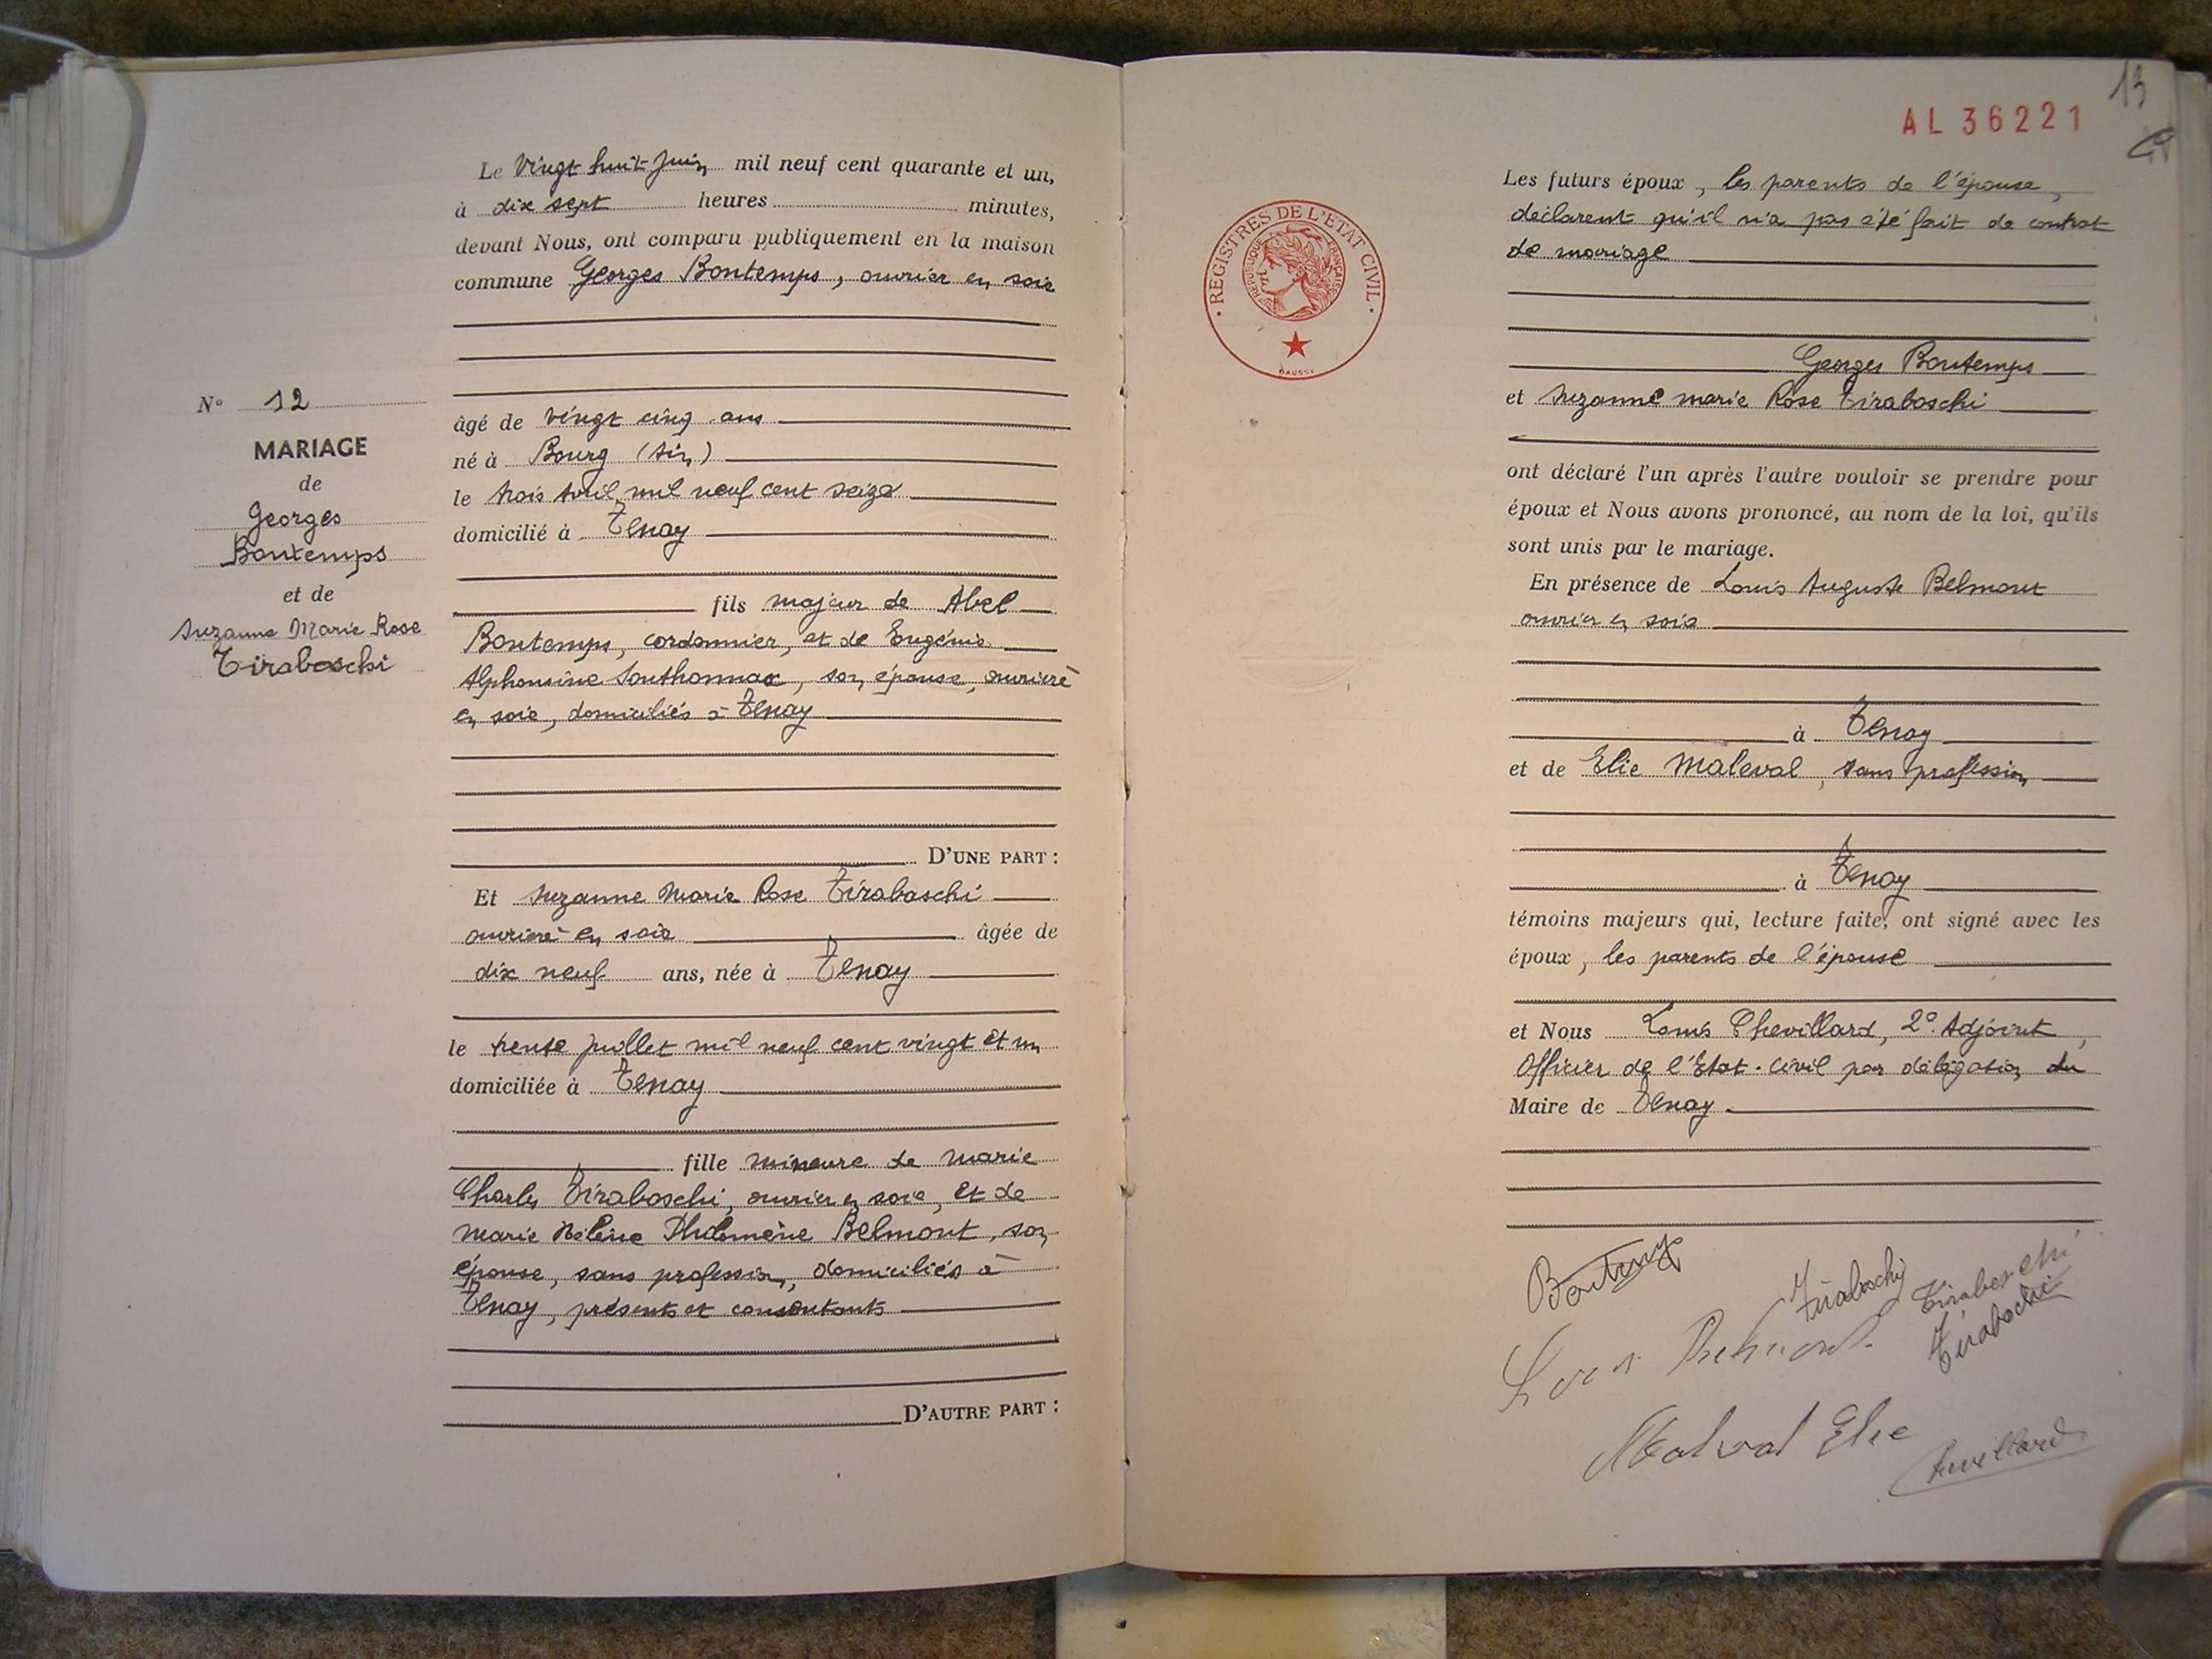 Le vingt huit juin mil neuf cent quarante et un,
à dix sept heures minutes,
devant Nous, ont comparu publiquement en la maison
commune Georges Bontemps, ouvrier en soie
N° 12
MARIAGE
de
Georges
Bontemps
et de
Suzanne Marie Rose
Tiraboschi
âgé de vingt cinq ans
né à Bourg (Ain)
le trois Avril mil neuf cent seize
domicilié à Tenay
fils majeur de Abel
Bontemps, cordonnier, et de Eugénie
Alphonsine Southonnax, son épouse, ouvrière
en soie, domiciliés à Tenay
D'UNE PART :
Et Suzanne Marie Rose Tiraboschi
ouvrière en soie âgée de
dix neuf ans, née à Tenay
le trente juillet mil neuf cent vingt et un
domiciliée à Tenay
fille mineure de Marie
Charles Tiraboschi, ouvrier en soie, et de
Marie Hélène Philomène Belmont, son
épouse, sans profession, domiciliés à
Tenay, présents et consentants
D'AUTRE PART :
13
AL 36221
REGISTRES DE L'ETAT CIVIL
REPUBLIQUE FRANÇAISE
DAUSSY
Les futurs époux, les parents de l'épouse,
déclarent qu'il n'a pas été fait de contrat
de mariage
Georges Bontemps
et Suzanne Marie Rose Tiraboschi
ont déclaré l'un après l'autre vouloir se prendre pour
époux et Nous avons prononcé, au nom de la loi, qu'ils
sont unis par le mariage.
En présence de Louis Auguste Belmont
ouvrier en soie
à Tenay
et de Elie Maleval, sans profession
à Tenay
témoins majeurs qui, lecture faite, ont signé avec les
époux, les parents de l'épouse
et Nous Louis Chevillard, 2e Adjoint,
Officier de l'Etat-civil par délégation du
Maire de Tenay.
Bontemps
Tiraboschi Tiraboschi
Tiraboschi
Louis Belmont
Malval Elie
Chevillard